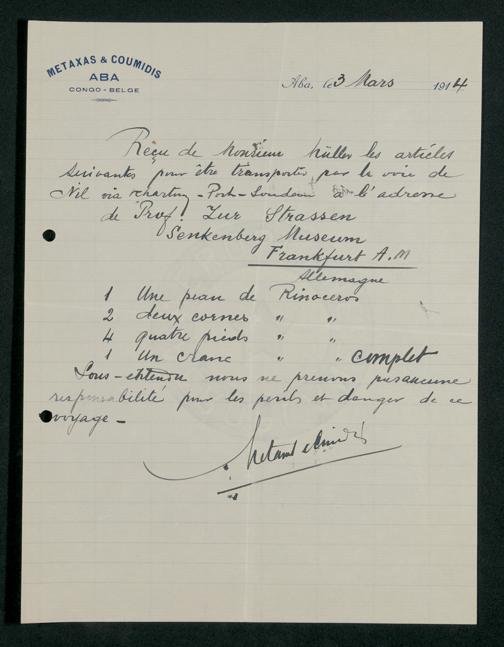 METAXAS & COUMIDIS
ABA
CONGO-BELGE
Aba, le 3 Mars 1914
Reçu de Monsieur Müller les articles
suivantes pour être transportés par la voie de
Nil via Khartoum - Port-Soudan à l'adresse
de Prof. Zur Strassen
Senkenberg Museum
Frankfurt A.M
Allemagne
1 Une peau de Rinoceros
2 deux cornes " "
4 quatre pieds " "
1 Un crane " " complet
Sous-entendu nous ne prenons pas aucune
responsabilité pour les perils et danger de ce
voyage -